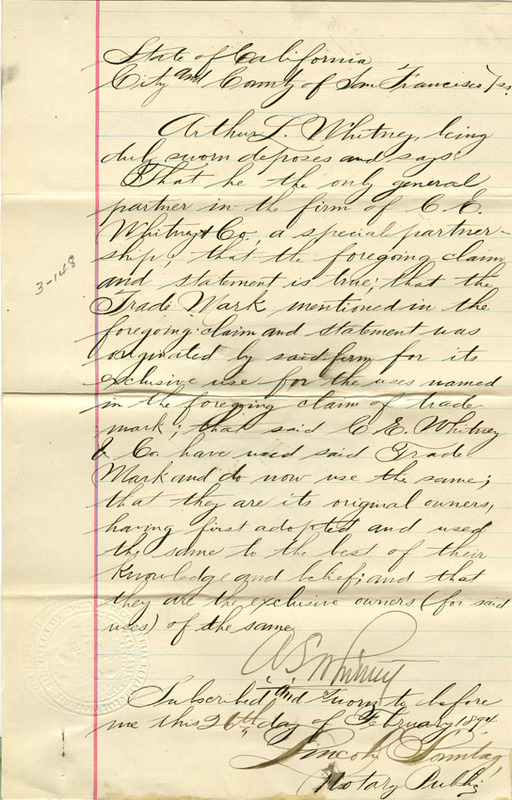 State of California
City and County of San Francisco } ss.
Arthur L. Whitney, being
duly sworn deposes and says:
That he the only general
partner in the firm of C. E.
Whitney & Co., a special partner-
ship; that the foregoing claim
and statement is true; that the
3-148
Trade Mark mentioned in the
foregoing claim and statement was
originated by said firm for its
exclusive use for the uses named
in the foregoing claim of trade
mark; that said C. E. Whitney
& Co. have used said Trade
Mark and do now use the same;
that they are its original owners,
having first adopted and used
the same to the best of their
knowledge and belief; and that
they are the exclusive owners (for said
uses) of the same
Whitney
Subscribed and sworn to before
me this 26th day of February 1894.
Lincoln Sonntag,
Notary Public